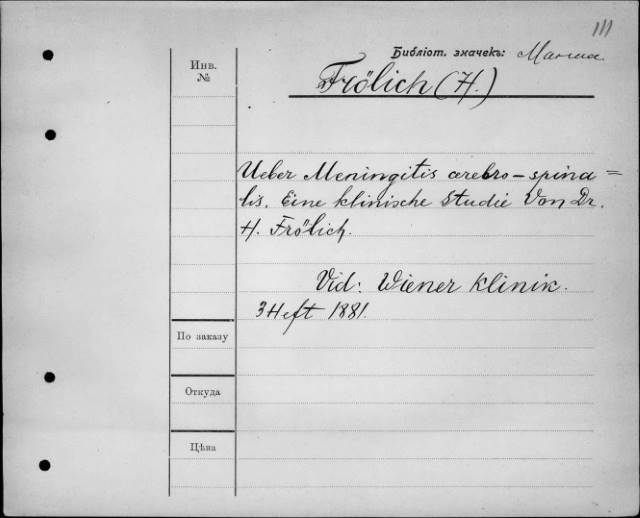 111
Библіот. значекъ:
Инв.
№
Frölich (H.)
Ueber Meningitis cerebro-spina=
lis. Eine klinische Studie Von Dr.
H. Frölich.
Vid: Wiener Klinik.
3 Heft 1881.
По заказу
Откуда
Цѣна